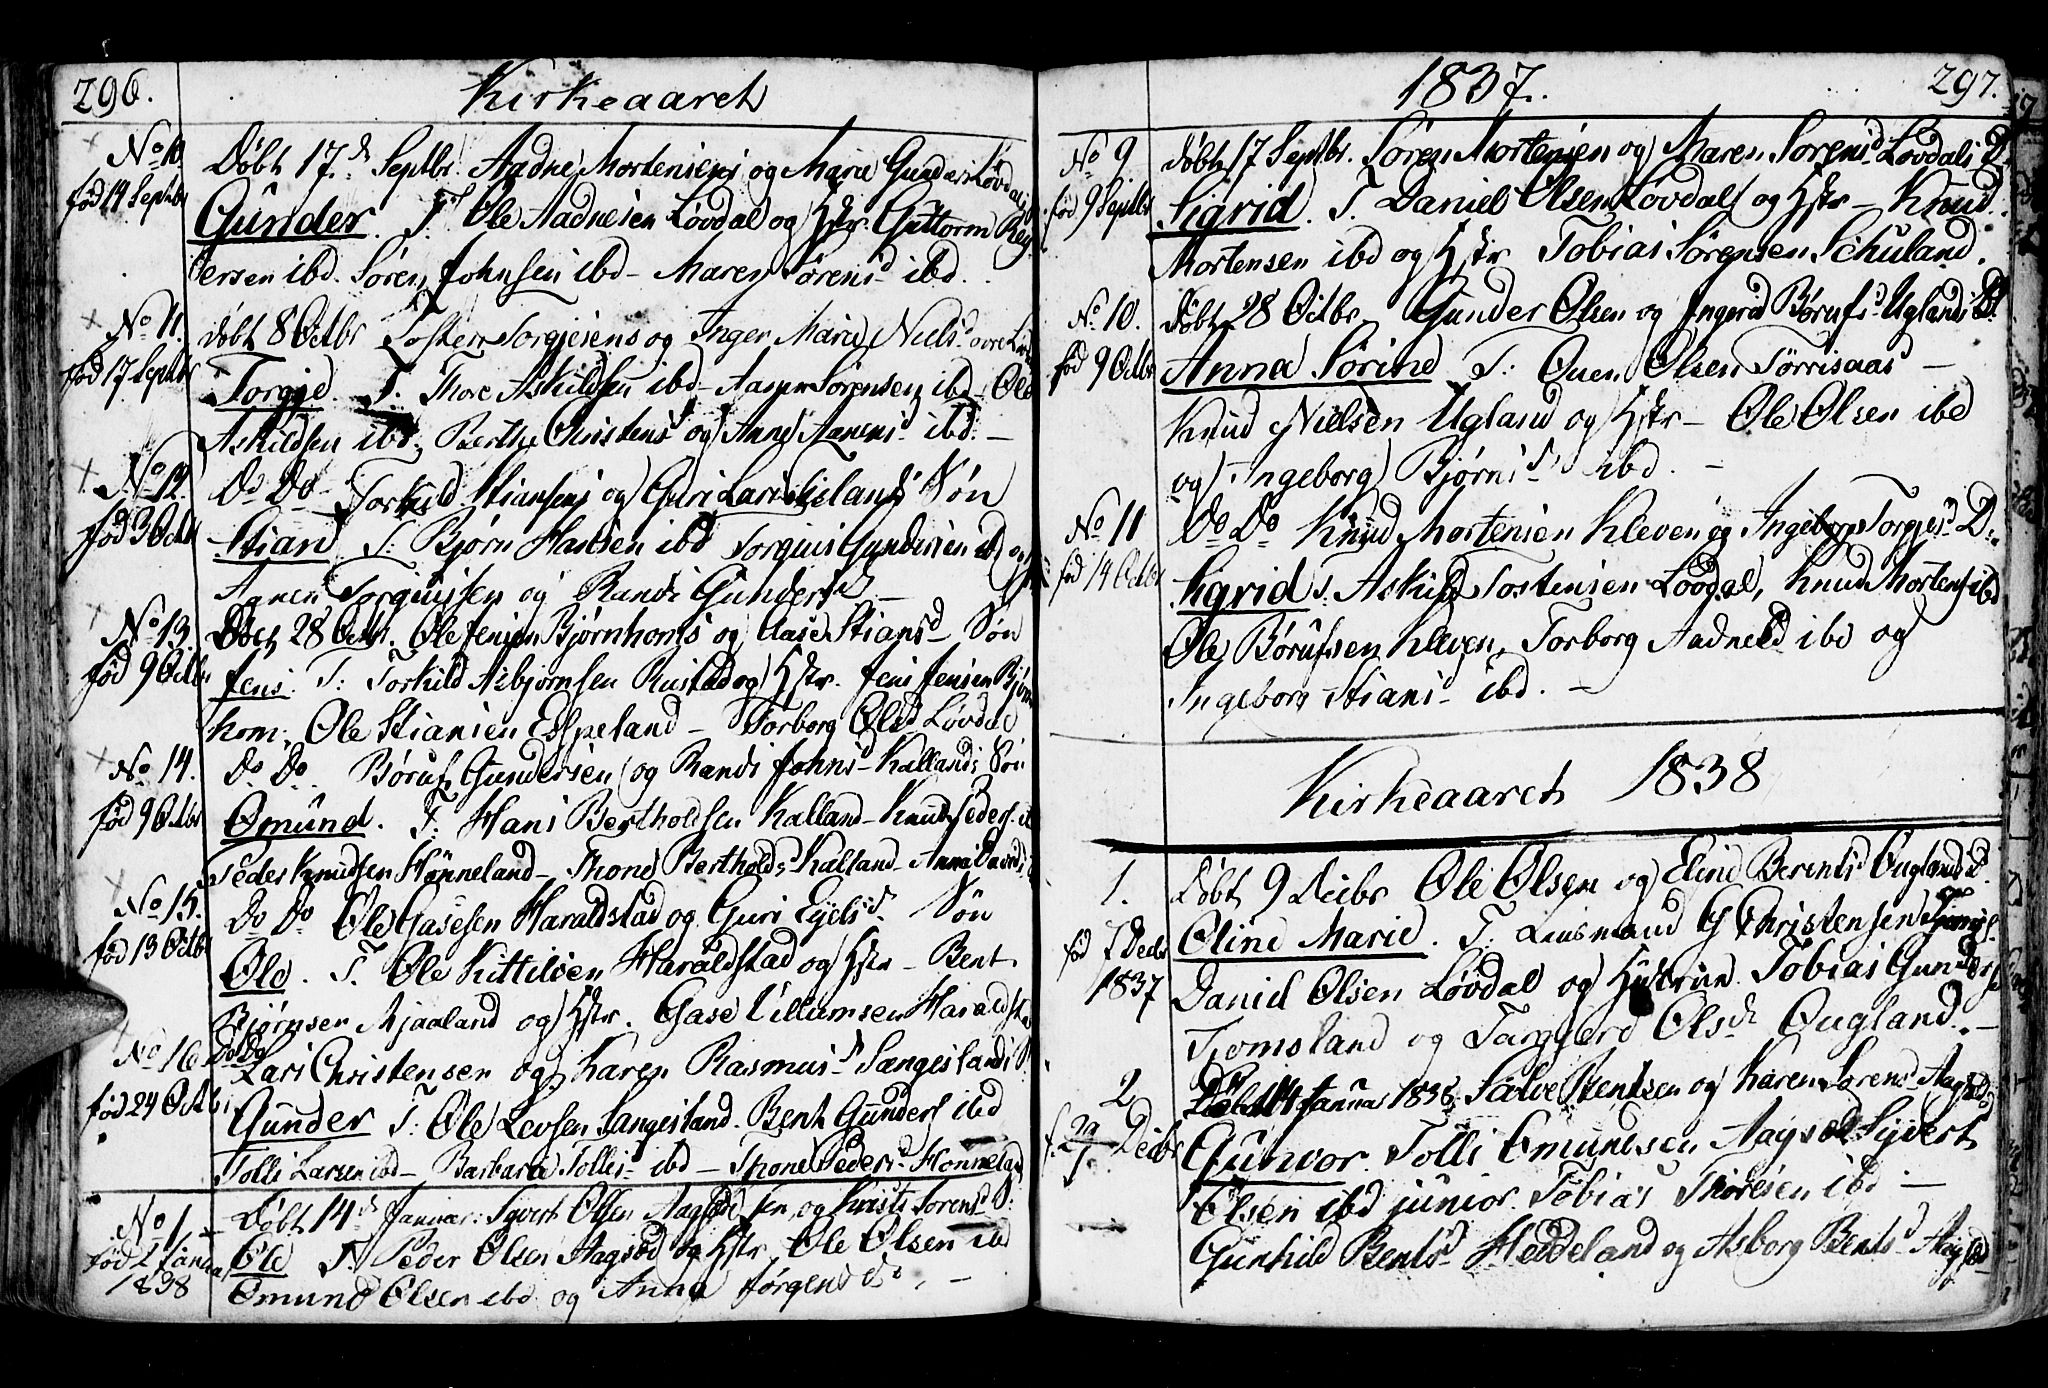 296.
Kirkeaaret
No 10.
fød 14 Septbr
Døbt 17.d Septbr. Aadne Mortensens og Marie Gunders Løvdals
Gunder. T. Ole Aadnesen Løvdal og Hstr. Guttorm
ersen ibd. Søren Johnsen ibd - Maren Sørensd ibd.
No 11.
fød 17 Septbr
døbt 8 Octbr Tosten Torgiesens og Inger Marie Nielsd
Torgie. T. Thore Askildsen ibd - Aanen Sørensen ibd - Ole
Askildsen ibd. Berthe Christensd og Anne Aanensd ibd. -
No 12.
fød 3 Octb
Do Do - Torkild Stiansens og Guri Larsd Søn
Stian T: Bjørn Hansen ibd Torgius Gundersen ibd og
Aanen Torgiussen og Randi Gundersd -
No 13.
fød 9 Octbr
Døbt 28 Octbr. Ole Jensen Bjørnhoms og Aase Stiansd Søn
Jens. T: Torkild Asbjørnsen Rustad og Hstr. Jens Jensen Bjørn
hom, Ole Stiansen Espeland - Torborg Olsd Løvdal
No 14.
fød 9 Octbr
Do Do. Børuf Gundersen og Randi Johnsd Kallands Søn
Omund. T: Hans Bertholdsen Kalland - Knud Peders.
Peder Knudsen Hønneland - Thone Bertholdsd Kalland - Anna
No 15.
fød 13 Octbr
Do Do Ole Gasesen Haraldstad og Guri Ejelsd. Søn
Ole. T. Ole Kittilsen Haraldstad og Hstr - Bent
Bjørnsen Mjaaland og Hstr. Gase Villumsen Haraldsta
No 16
fød 24 Octbr
Do Do
Lars Christensen og Karen Rasmusd Sangeslands
Gunder T: Ole Levsen Sangesland. Bent Gunders ibd
Tolli Larsen ibd - Barbara Tollisd ibd - Thone Pedersd Honneland
No 1.
fød 2 Janua
1838
Døbt 14.d Januar: Syvert Olsen Aagsød sen. og Kirsti Sørensd S:
Ole T. Peder Olsen Aagsød og Hstr, Ole Olsen ibd
Omund Olsen ibd og Anna Jørgensd do. -
1837.
297.
No 9
fød 9 Septbr
døbt 17 Septbr. Søren Mortensen og Maren Sørensd Løvdals D.
Sigrid. T. Daniel Olsen Løvdal og Hstr - Knud
Mortensen ibd og Hstr Tobias Sørensen Schuland.
No 10.
fød 9 Octbr
døbt 28 Octbr. Gunder Olsen og Ingerd Børufsd Uglands D.
Anna Sørine T: Ouen Olsen Tørrisaas -
Knud Nielsen Ugland og Hstr - Ole Olsen ibd
og Ingeborg Bjørnsd ibd. -
No 11
fød 14 Octbr
Do Do Knud Mortensen Kleven og Ingeborg Torgjesd D.
Sigrid T: Askild Tostensen Løvdal, Knud Mortens ibd
Ole Børufsen Kleven, Torborg Aadnesd ibd og
Ingeborg Stiansd ibd. -
Kirkeaaret 1838
1.
fød 7 Decbr
1837
Døbt 9 Decbr Ole Olsen og Eline Berentsd Ouglands D.
Oline Marie. T. Lensmand G Christensen
Daniel Olsen Løvdal og Hustrue Tobias Gunders
Tjomsland og Targjerd Olsd Ougland. -
2
f. 29 Decbr
Døbt 14 Januar 1838. Salve Bentsen og Karen Sørensd Aagsød
Gunvor. Tolli Omundsen Aagsød Syvert
Olsen ibd junior. Tobias Thoresen ibd -
Gunhild Bentsd Heddeland og Asborg Bentsd Aagsød